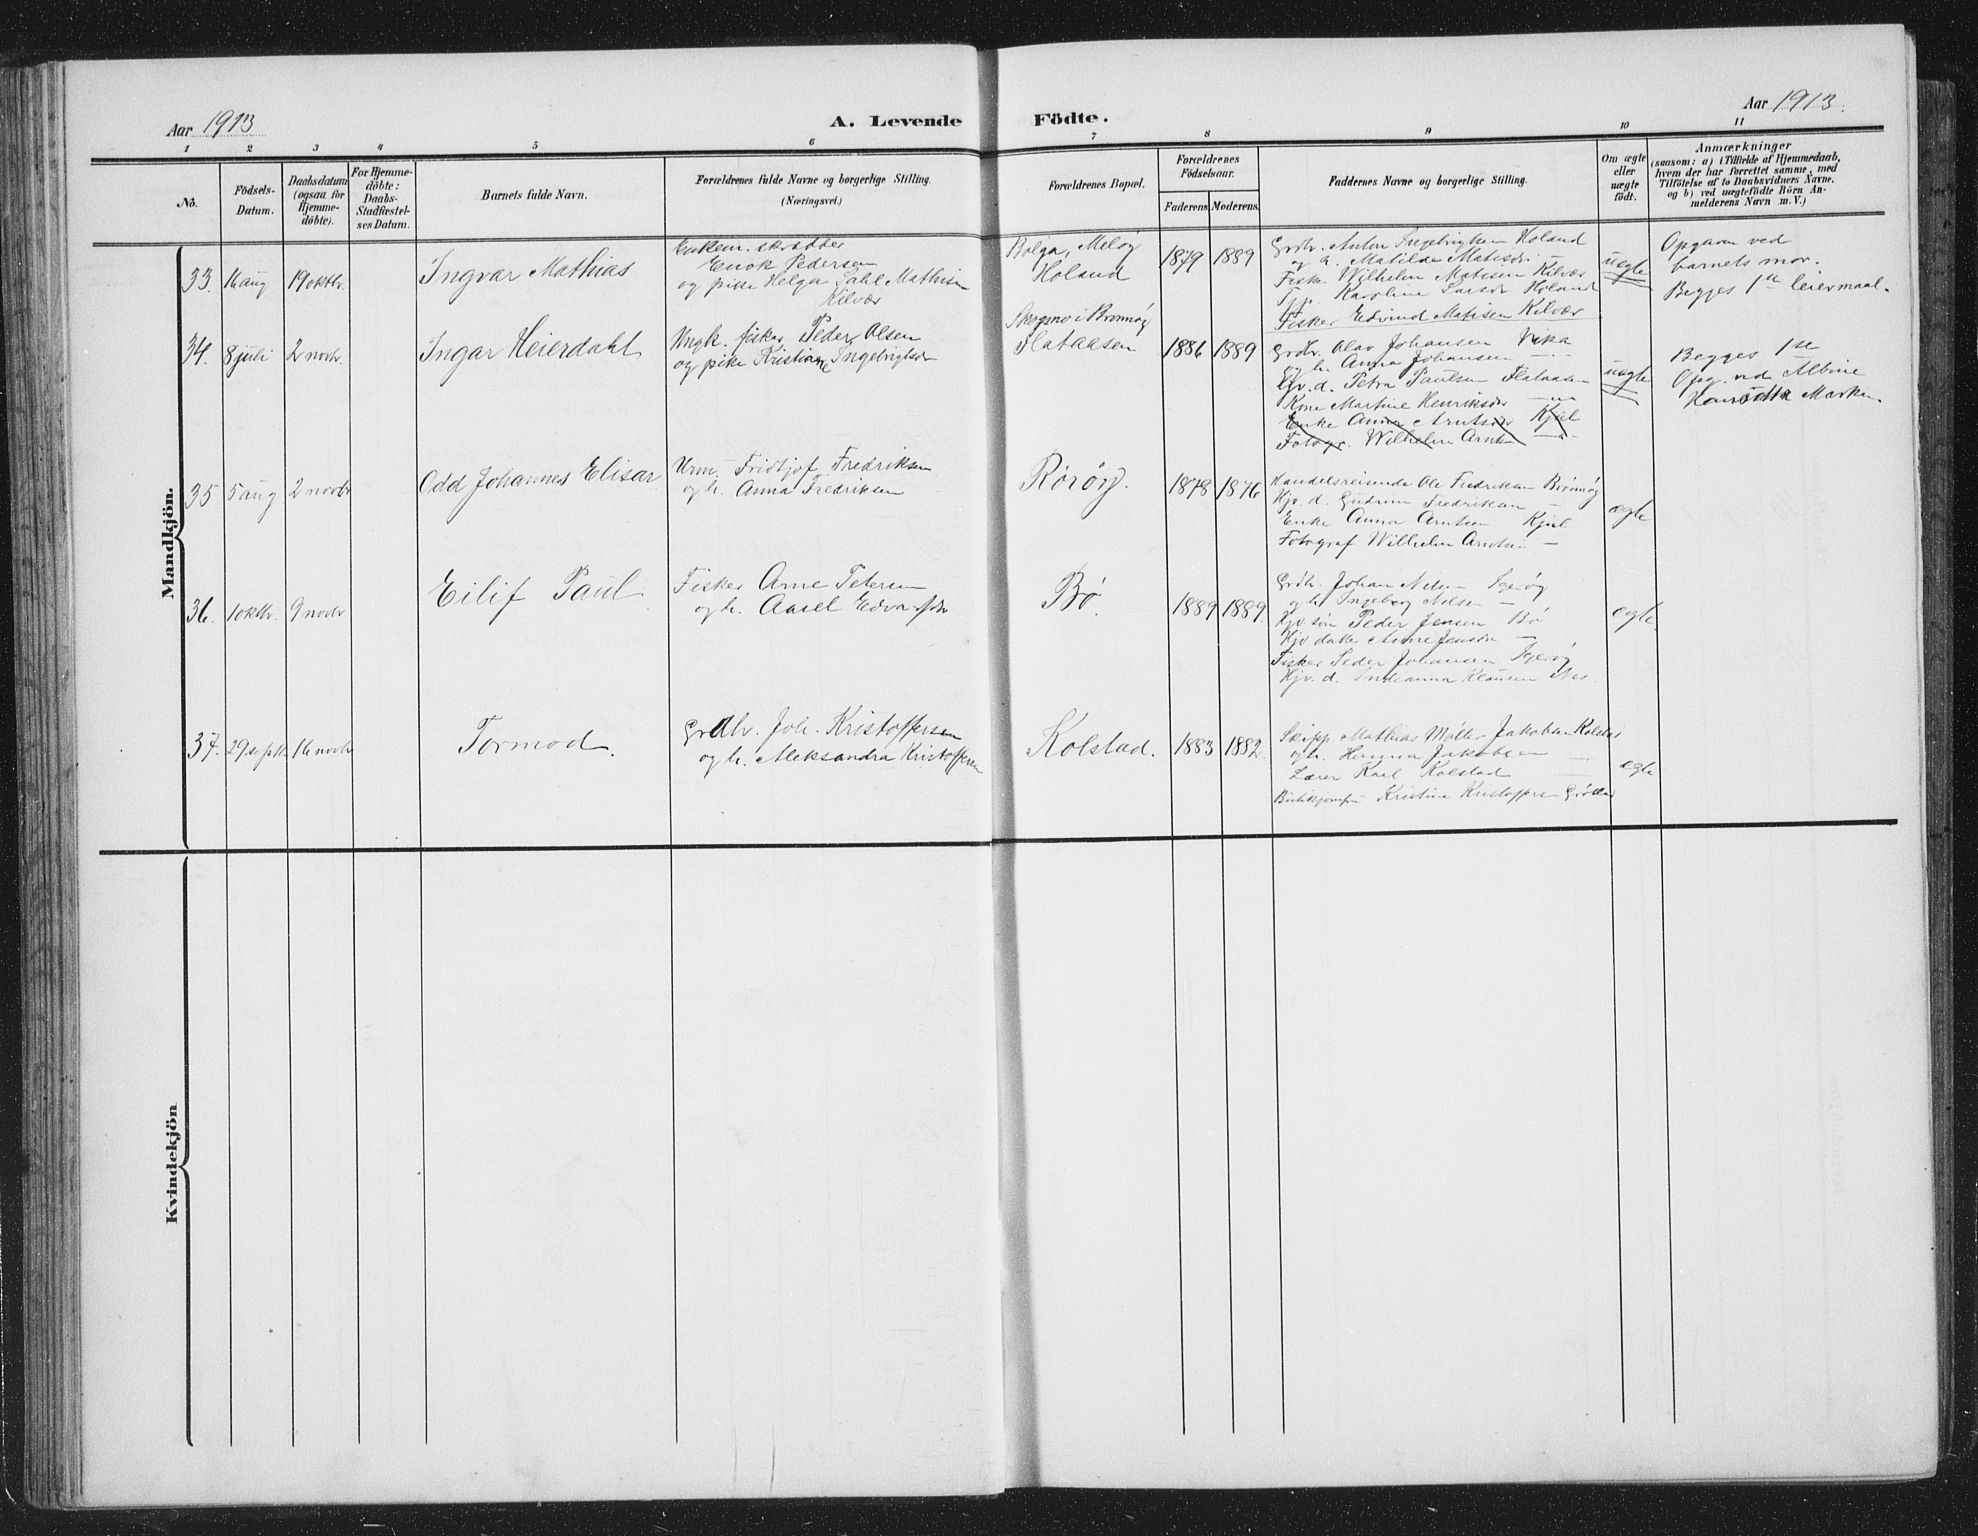 Aar 1913
A. Levende Födte.
Aar 1913.
1 2 3 4 5 6 7 8 9 10 11
No.
Födsels-
Datum.
Daabsdatum
(ogsaa for
Hjemme-
döbte).
For Hjemme-
döbte:
Daabs-
Stadfæstel-
ses Datum.
Barnets fulde Navn.
Forældrenes fulde Navne og borgerlige Stilling.
(Næringsvei.)
Forældrenes Bopæl.
Forældrenes
Födselsaar.
Faderens. Moderens.
Faddernes Navne og borgerlige Stilling.
Om ægte
eller
uægte
födt.
Anmærkninger
(saasom: a) i Tilfælde af Hjemmedaab,
hvem der har forrettet samme, med
Tilföielse af to Daabsvidners Navne.
og b) ved uægtefödte Börn An-
melderens Navn m. V.)
Mandkjön.
33. 16 aug 19 oktbr. Ingvar Mathias
Enkem. skrædder
Enok Pedersen
og pike Helga Dahl Mathisen
Kilvær
Bolga, Meløy
Holand
1879 1889
Grdbr. Anton Ingebrigtsen Holand
og h. Matilde Matisdr
Fisk. Wilhelm Matisen Kilvær
Tjp. Karoline Larsdr Holand
Fisker Edvind Matisen Kilvær
uegte
Opgaven ved
barnets mor.
Begges 1ste leiermaal.
34. 8 juli 2 novbr. Ingar Heierdahl
Ungk. fisker Peder Olsen
og pike Kristiane Ingebrigtsdr
Skogmo i Brønnøy
Flataasen
1886 1889
Grdbr. Olav Johansen Vika
og h. Anna Johansen — " —
Gv. d. Petra Paulsen Flataasen
Kone Martine Henriksdr — " —
Enke Anna Arntsdr Kjul
Fotogr. Wilhelm Arntsen — " —
uegte
Begges 1ste
Opg. ved Albine
35 5 aug 2 novbr Odd Johannes Elisar
Urm. Fridtjof Fredriksen
og h. Anna Fredriksen
Rørøy.
1878 1876
Handelsreisende Ole Fredriksen Brønnøy
Hjv. d. Gudrun Fredriksen —
Enke Anna Arntsen Kjul
Fotograf Wilhelm Arntsen —
ægte
36. 1 oktbr. 9 novbr Eilif Paul
Fisker Arne Petersen
og h. Aasel Edvardsdr
Bø.
1889 1889.
Grdbr. Johan Nilsen Igerøy
og h. Ingeborg Nilsen —
Hjv. søn Peder Jensen Bø
Hjv. datter Anne Jensdr —
Fisker Peder Johansen Igerøy
Hjv. d. Indianna Klausen Nes.
egte.
37. 29 septbr. 16 novbr Tormod.
Grdbr. Joh. Kristoffersen
og h. Aleksandra Kristoffersen
Kolstad.
1883 1882.
Skipp. Mathias Møller Jakobsen Kolstad
og h. Hanna Jakobsen —
Lærer Karl Kolstad —
Kristine Kristoffersen
egte
Kvindekjön